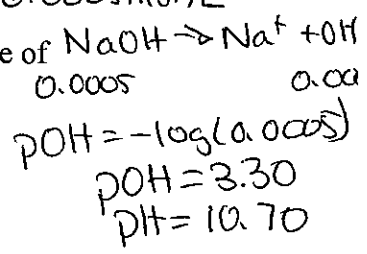 e of NaOH → Na⁺ + OH
0.0005 0.00
pOH = -log(0.0005)
pOH = 3.30
pH = 10.70